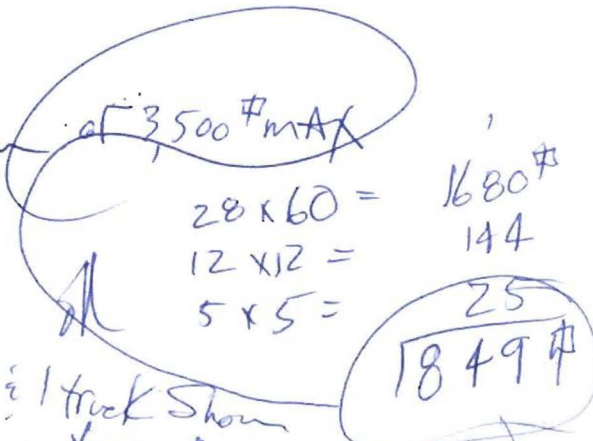 of 3,500 # MAX
28 x 60 = 1680 #
12 x 12 = 144
5 x 5 = 25
1849 #
& 1 truck Shown